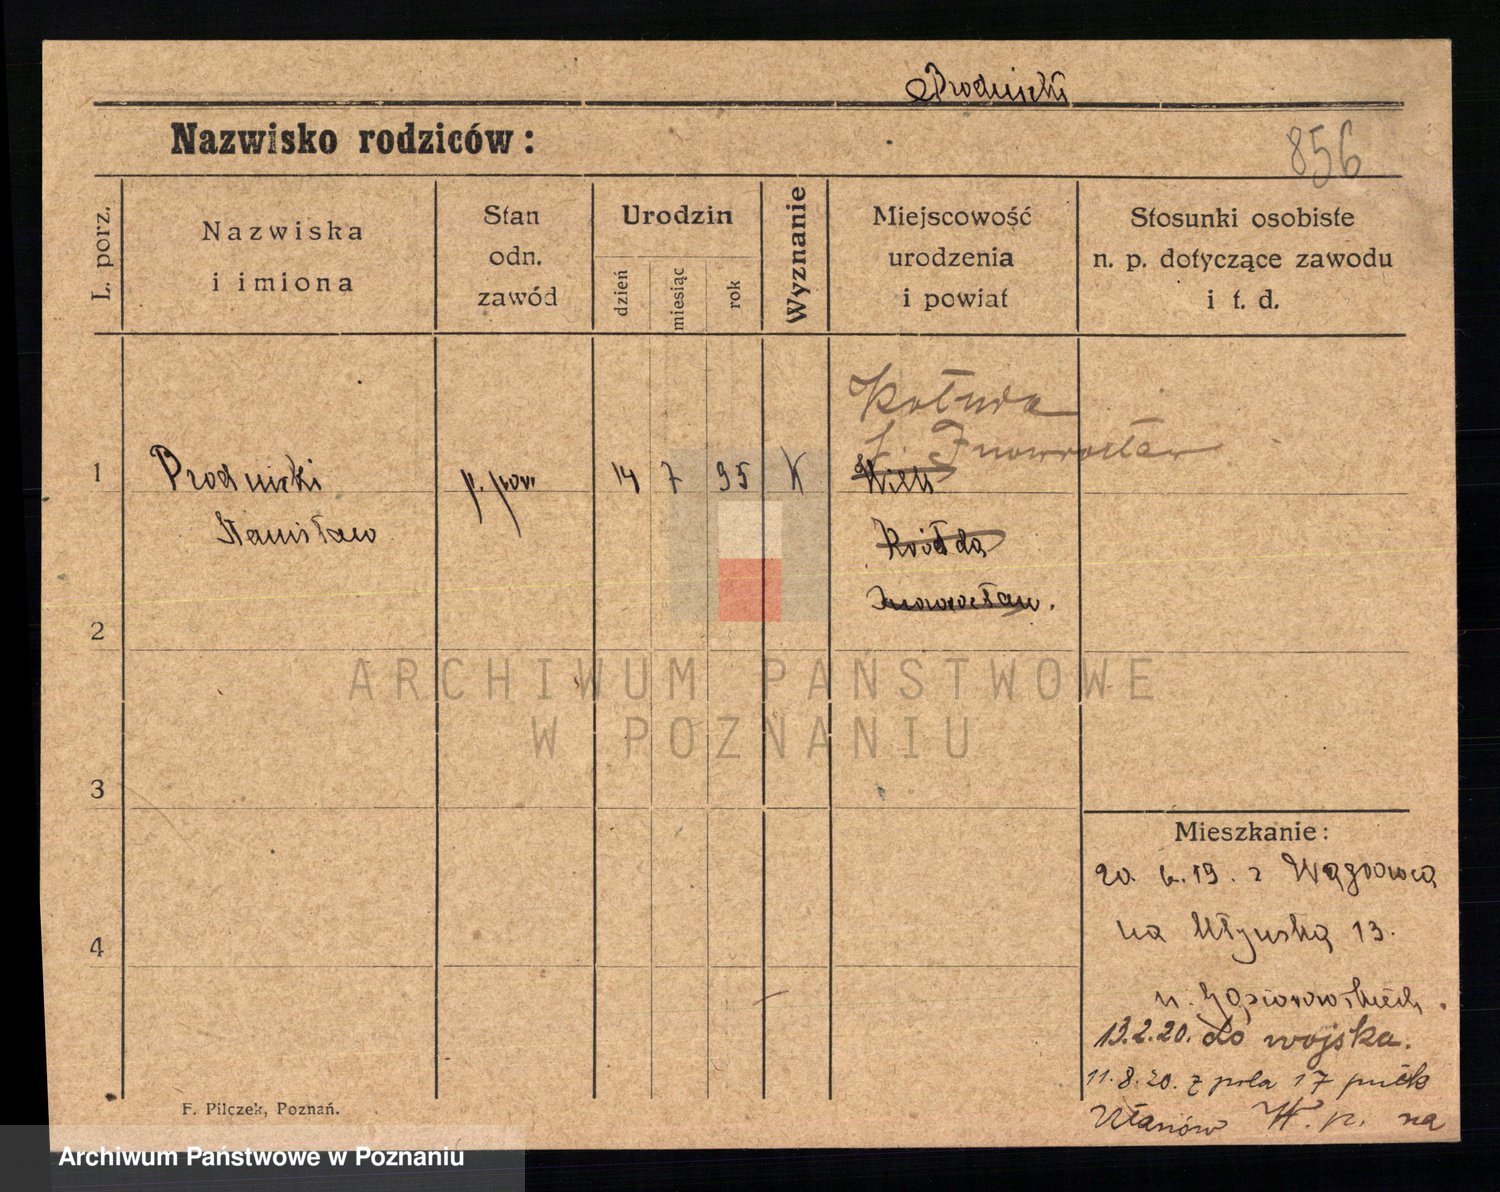 Prodnicki
Nazwisko rodziców:
856
L. porz.
Nazwiska
i imiona
Stan
odn.
zawód
Urodzin
dzień
miesiąc
rok
Wyznanie
Miejscowość
urodzenia
i powiat
Stosunki osobiste
n. p. dotyczące zawodu
i t. d.
Kołuda
Inowrocław
1
Prodnicki
14 7 95 K
Stanisław
Inowrocław.
2
3
4
Mieszkanie:
20. 6. 19. z
na Młyńską 13.
u.
13.2.20. do wojska.
11.8.20. z pola 17 pułk
Ułanów W. p. na
F. Pilczek, Poznań.
ARCHIWUM PAŃSTWOWE
W POZNANIU
Archiwum Państwowe w Poznaniu